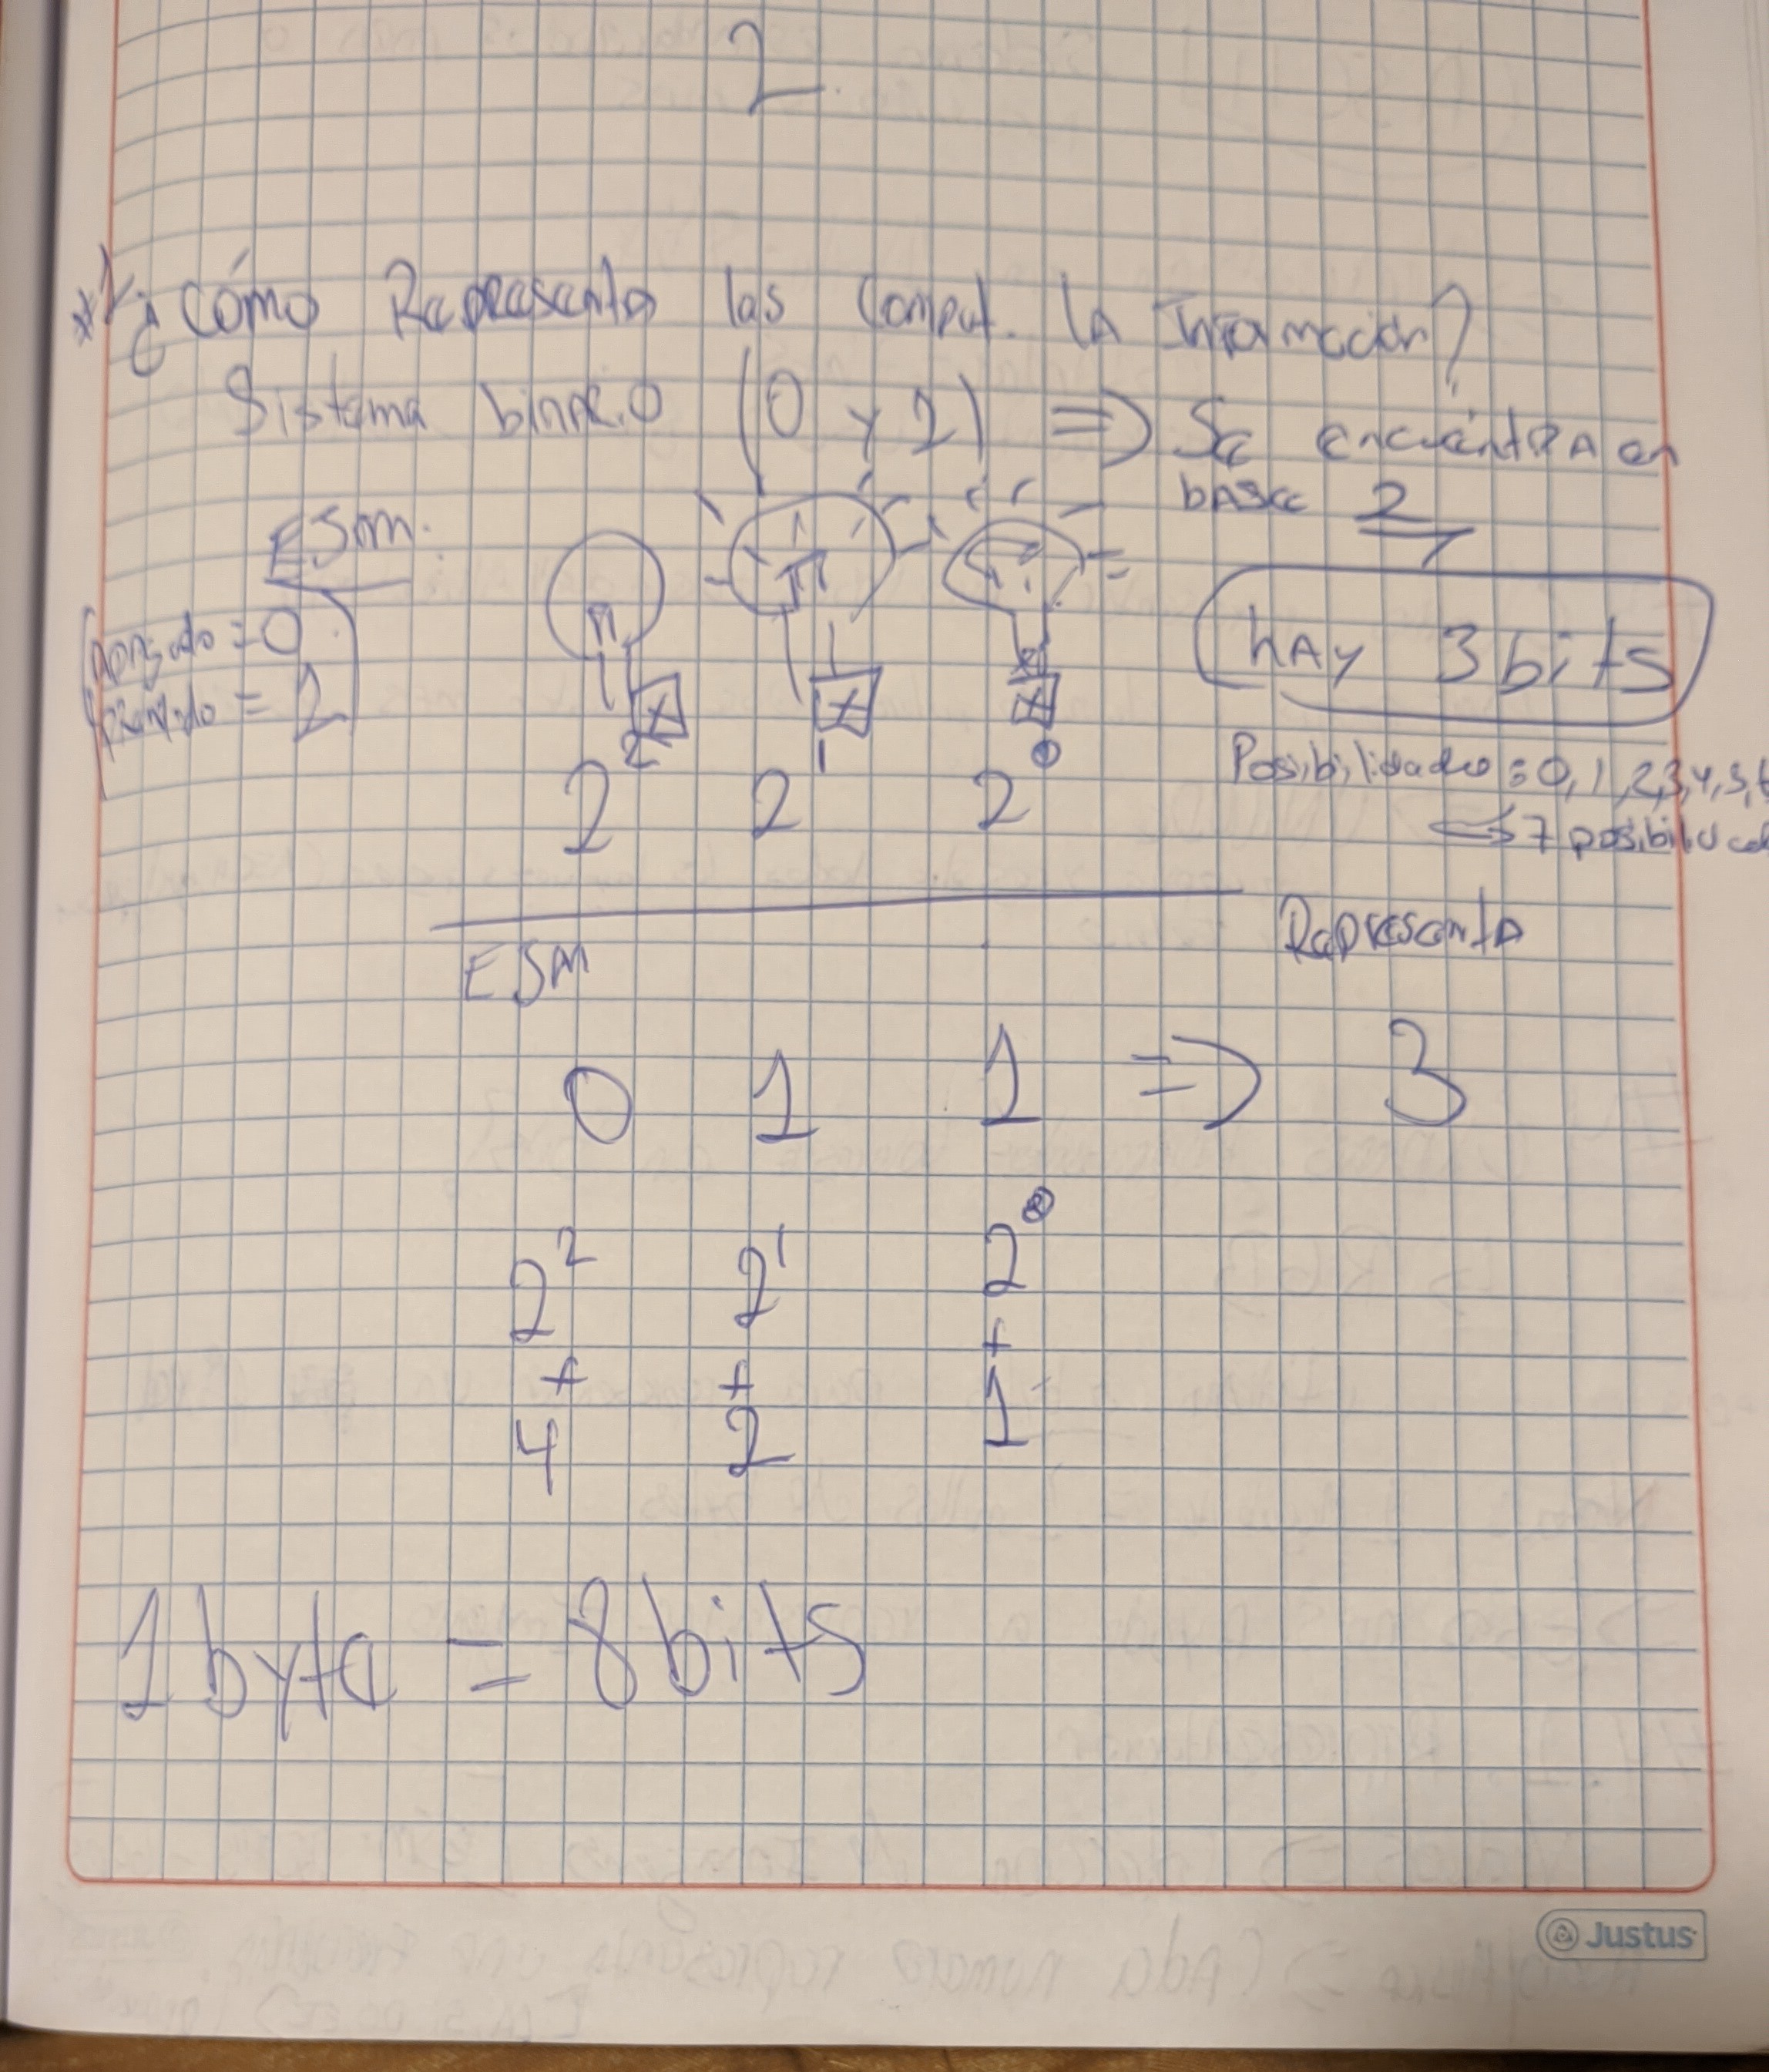 2.
*¿Cómo Representa las Comput. la Información?
Sistema binario (0 y 1) => Se encuentra en
base 2
EJm.
apagado = 0
prendido = 1
hay 3 bits
2² 2¹ 2⁰
Posibilidades = 0,1,2,3,4,5,6
7 posibilidad
Representa
EJM
0 1 1 => 3
2² 2¹ 2⁰
+ + +
4 2 1
1 byte = 8 bits
Justus